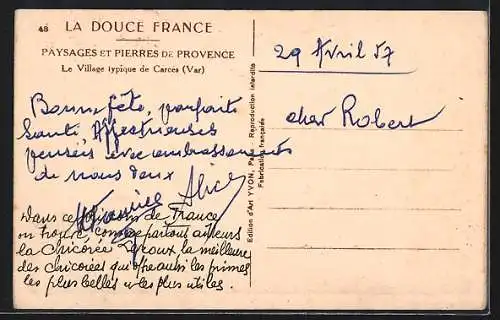 48 LA DOUCE FRANCE
PAYSAGES ET PIERRES DE PROVENCE
Le Village typique de Carcès (Var)
Bonne fête, parfaite
Santé, Affectueuses
pensées avec embrassements
de nous deux
Alice
Dans ce de France
on trouve comme partout ailleurs
la Chicorée Leroux, la meilleure
des chicorées qui offre aussi les primes
les plus belles et les plus utiles.
Edition d'Art YVON, Paris Reproduction interdite
Fabrication française
29 Avril 57
cher Robert